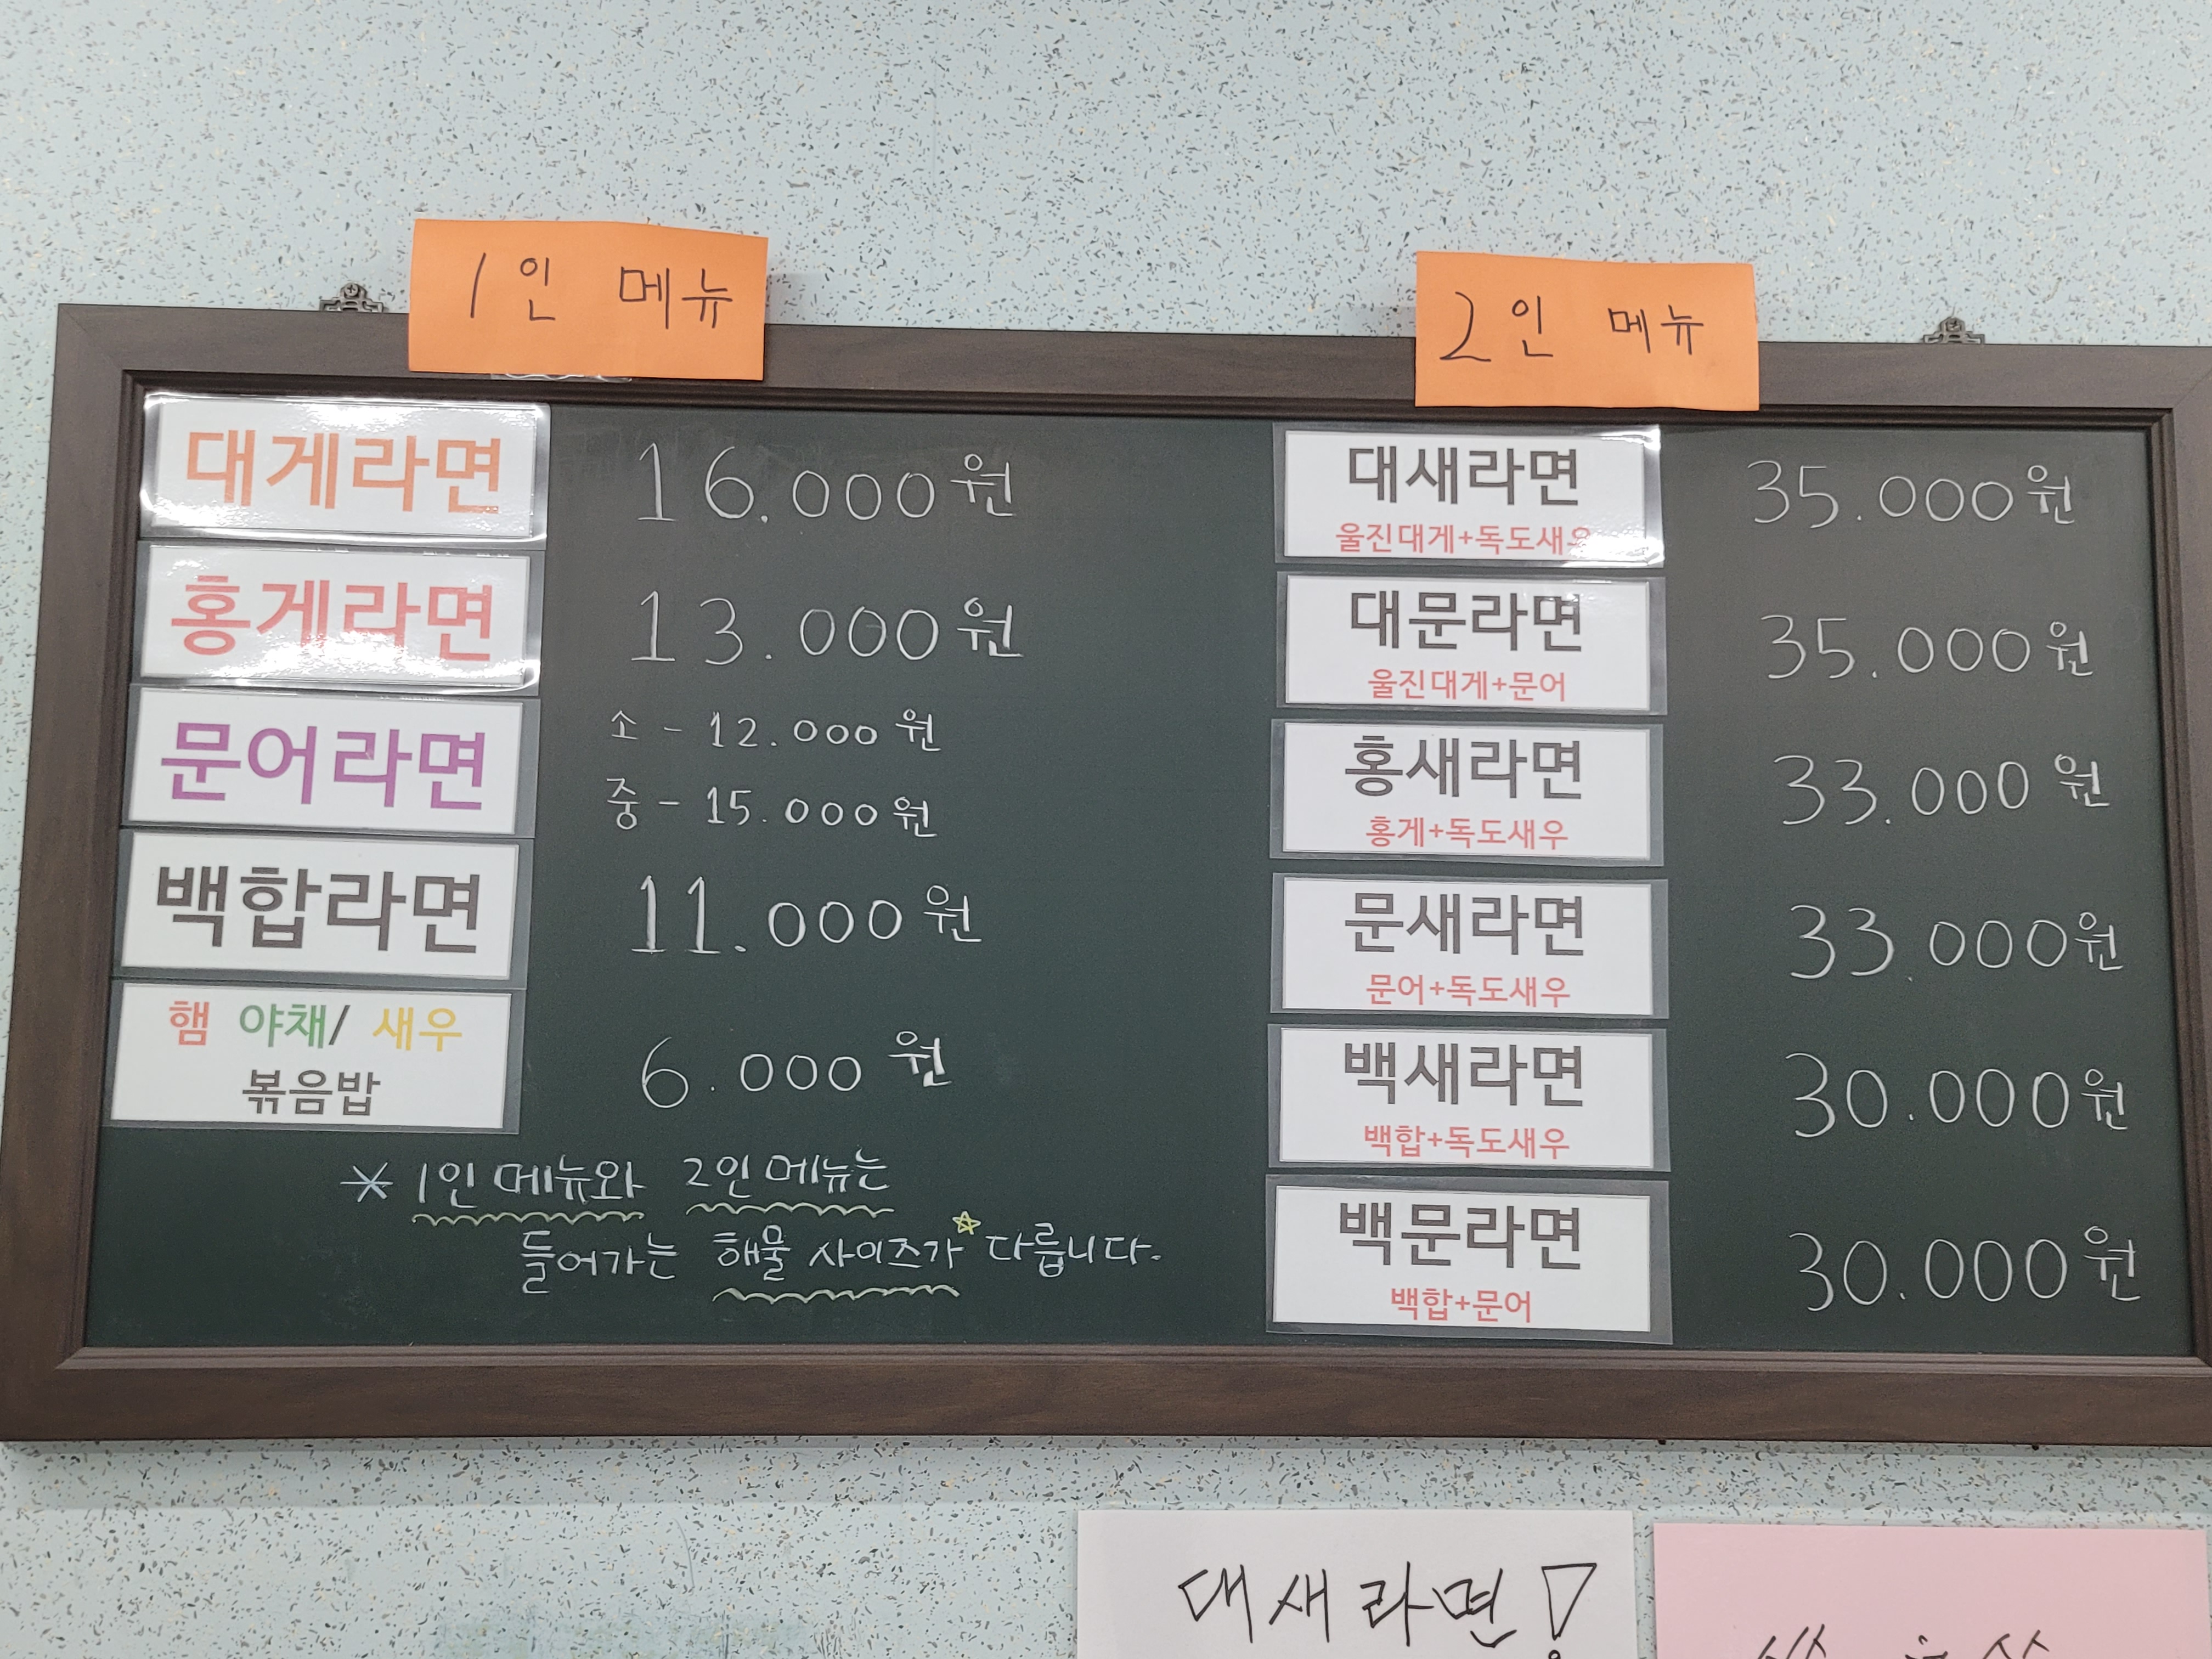 1인 메뉴
대게라면 16.000원
홍게라면 13.000원
문어라면 소 - 12.000원
중 - 15.000원
백합라면 11.000원
햄 야채/ 새우
볶음밥 6.000원
* 1인 메뉴와 2인 메뉴는
들어가는 해물 사이즈가 다릅니다.
2인 메뉴
대새라면 35.000원
울진대게+독도새우
대문라면 35.000원
울진대게+문어
홍새라면 33.000원
홍게+독도새우
문새라면 33.000원
문어+독도새우
백새라면 30.000원
백합+독도새우
백문라면 30.000원
백합+문어
대새라면!